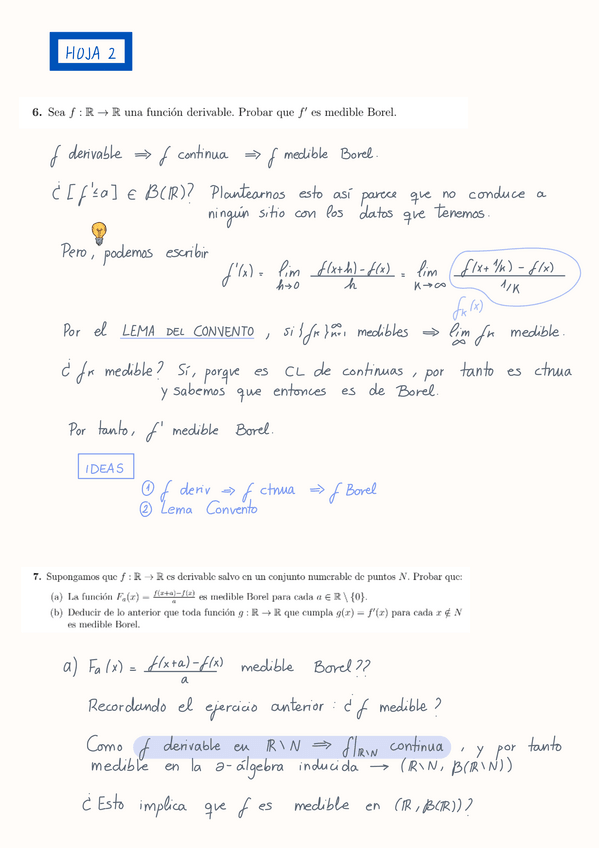 HOJA 2
6. Sea f : ℝ → ℝ una función derivable. Probar que f′ es medible Borel.
f derivable ⟹ f continua ⟹ f medible Borel.
¿[f'≤a] ∈ B(ℝ)? Plantearnos esto así parece que no conduce a
ningún sitio con los datos que tenemos.
Pero, podemos escribir
f'(x) = lim_{h→0} f(x+h)-f(x)/h = lim_{K→∞} f(x+1/K)-f(x)/1/K
f_K(x)
Por el LEMA DEL CONVENTO, si {f_K}_{K=1}^∞ medibles ⟹ lim_∞ f_K medible.
¿f_K medible? Sí, porque es CL de continuas, por tanto es ctnua
y sabemos que entonces es de Borel.
Por tanto, f' medible Borel.
IDEAS
① f deriv ⟹ f ctnua ⟹ f Borel
② Lema Convento
7. Supongamos que f : ℝ → ℝ es derivable salvo en un conjunto numerable de puntos N. Probar que:
(a) La función F_a(x) = f(x+a)−f(x)/a es medible Borel para cada a ∈ ℝ \ {0}.
(b) Deducir de lo anterior que toda función g : ℝ → ℝ que cumpla g(x) = f′(x) para cada x ∉ N
es medible Borel.
a) F_a(x) = f(x+a)-f(x)/a medible Borel??
Recordando el ejercicio anterior: ¿f medible?
Como f derivable en ℝ\N ⟹ f|_{ℝ\N} continua, y por tanto
medible en la ∂-álgebra inducida → (ℝ\N, B(ℝ\N))
¿Esto implica que f es medible en (ℝ, B(ℝ))?